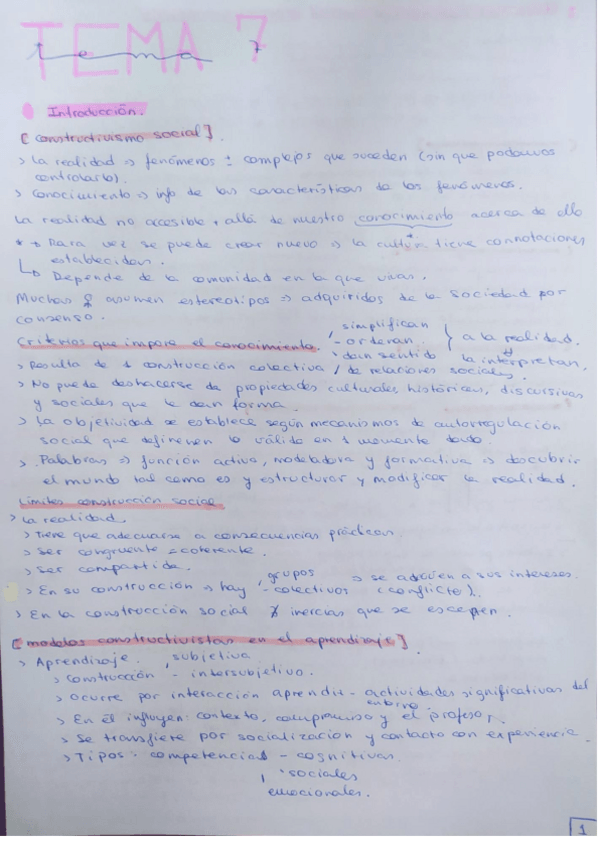 TEMA 7
tema 7
Introducción.
[constructivismo social].
> La realidad → fenómenos ± complejos que suceden (sin que podamos
controlarlo).
> Conocimiento → info de las características de los fenómenos.
La realidad no accesible + allá de nuestro conocimiento acerca de ello
* → Rara vez se puede crear nuevo → la cultura tiene connotaciones
establecidas.
↳ Depende de la comunidad en la que vivas.
Muchas asumen estereotipos → adquiridos de la sociedad por
consenso.
Criterios que impone el conocimiento. simplifican
- ordenan } a la realidad.
dan sentido la interpretan.
> Resulta de 1 construcción colectiva / de relaciones sociales.
> No puede deshacerse de propiedades culturales, históricas, discursivas
y sociales que le dan forma.
> La objetividad se establece según mecanismos de autorregulación
social que definen lo válido en 1 momento dado.
> Palabras → función activa, modeladora y formativa → descubrir
el mundo tal como es y estructurar y modificar la realidad.
Límites construcción social.
> La realidad.
> Tiene que adecuarse a consecuencias prácticas.
> Ser congruente = coherente.
> Ser compartida.
> En su construcción → hay grupos
- colectivos → se adecúen a sus intereses.
(conflicto).
> En la construcción social inercias que se escapen.
[modelos constructivistas en el aprendizaje]
> Aprendizaje.
> construcción subjetiva
- intersubjetivo.
> Ocurre por interacción aprendiz - actividades significativas del
entorno.
> En él influyen: contexto, compromiso y el profesor.
> Se transfiere por socialización y contacto con experiencia.
> Tipos: competencias - cognitivas.
sociales
emocionales.
1